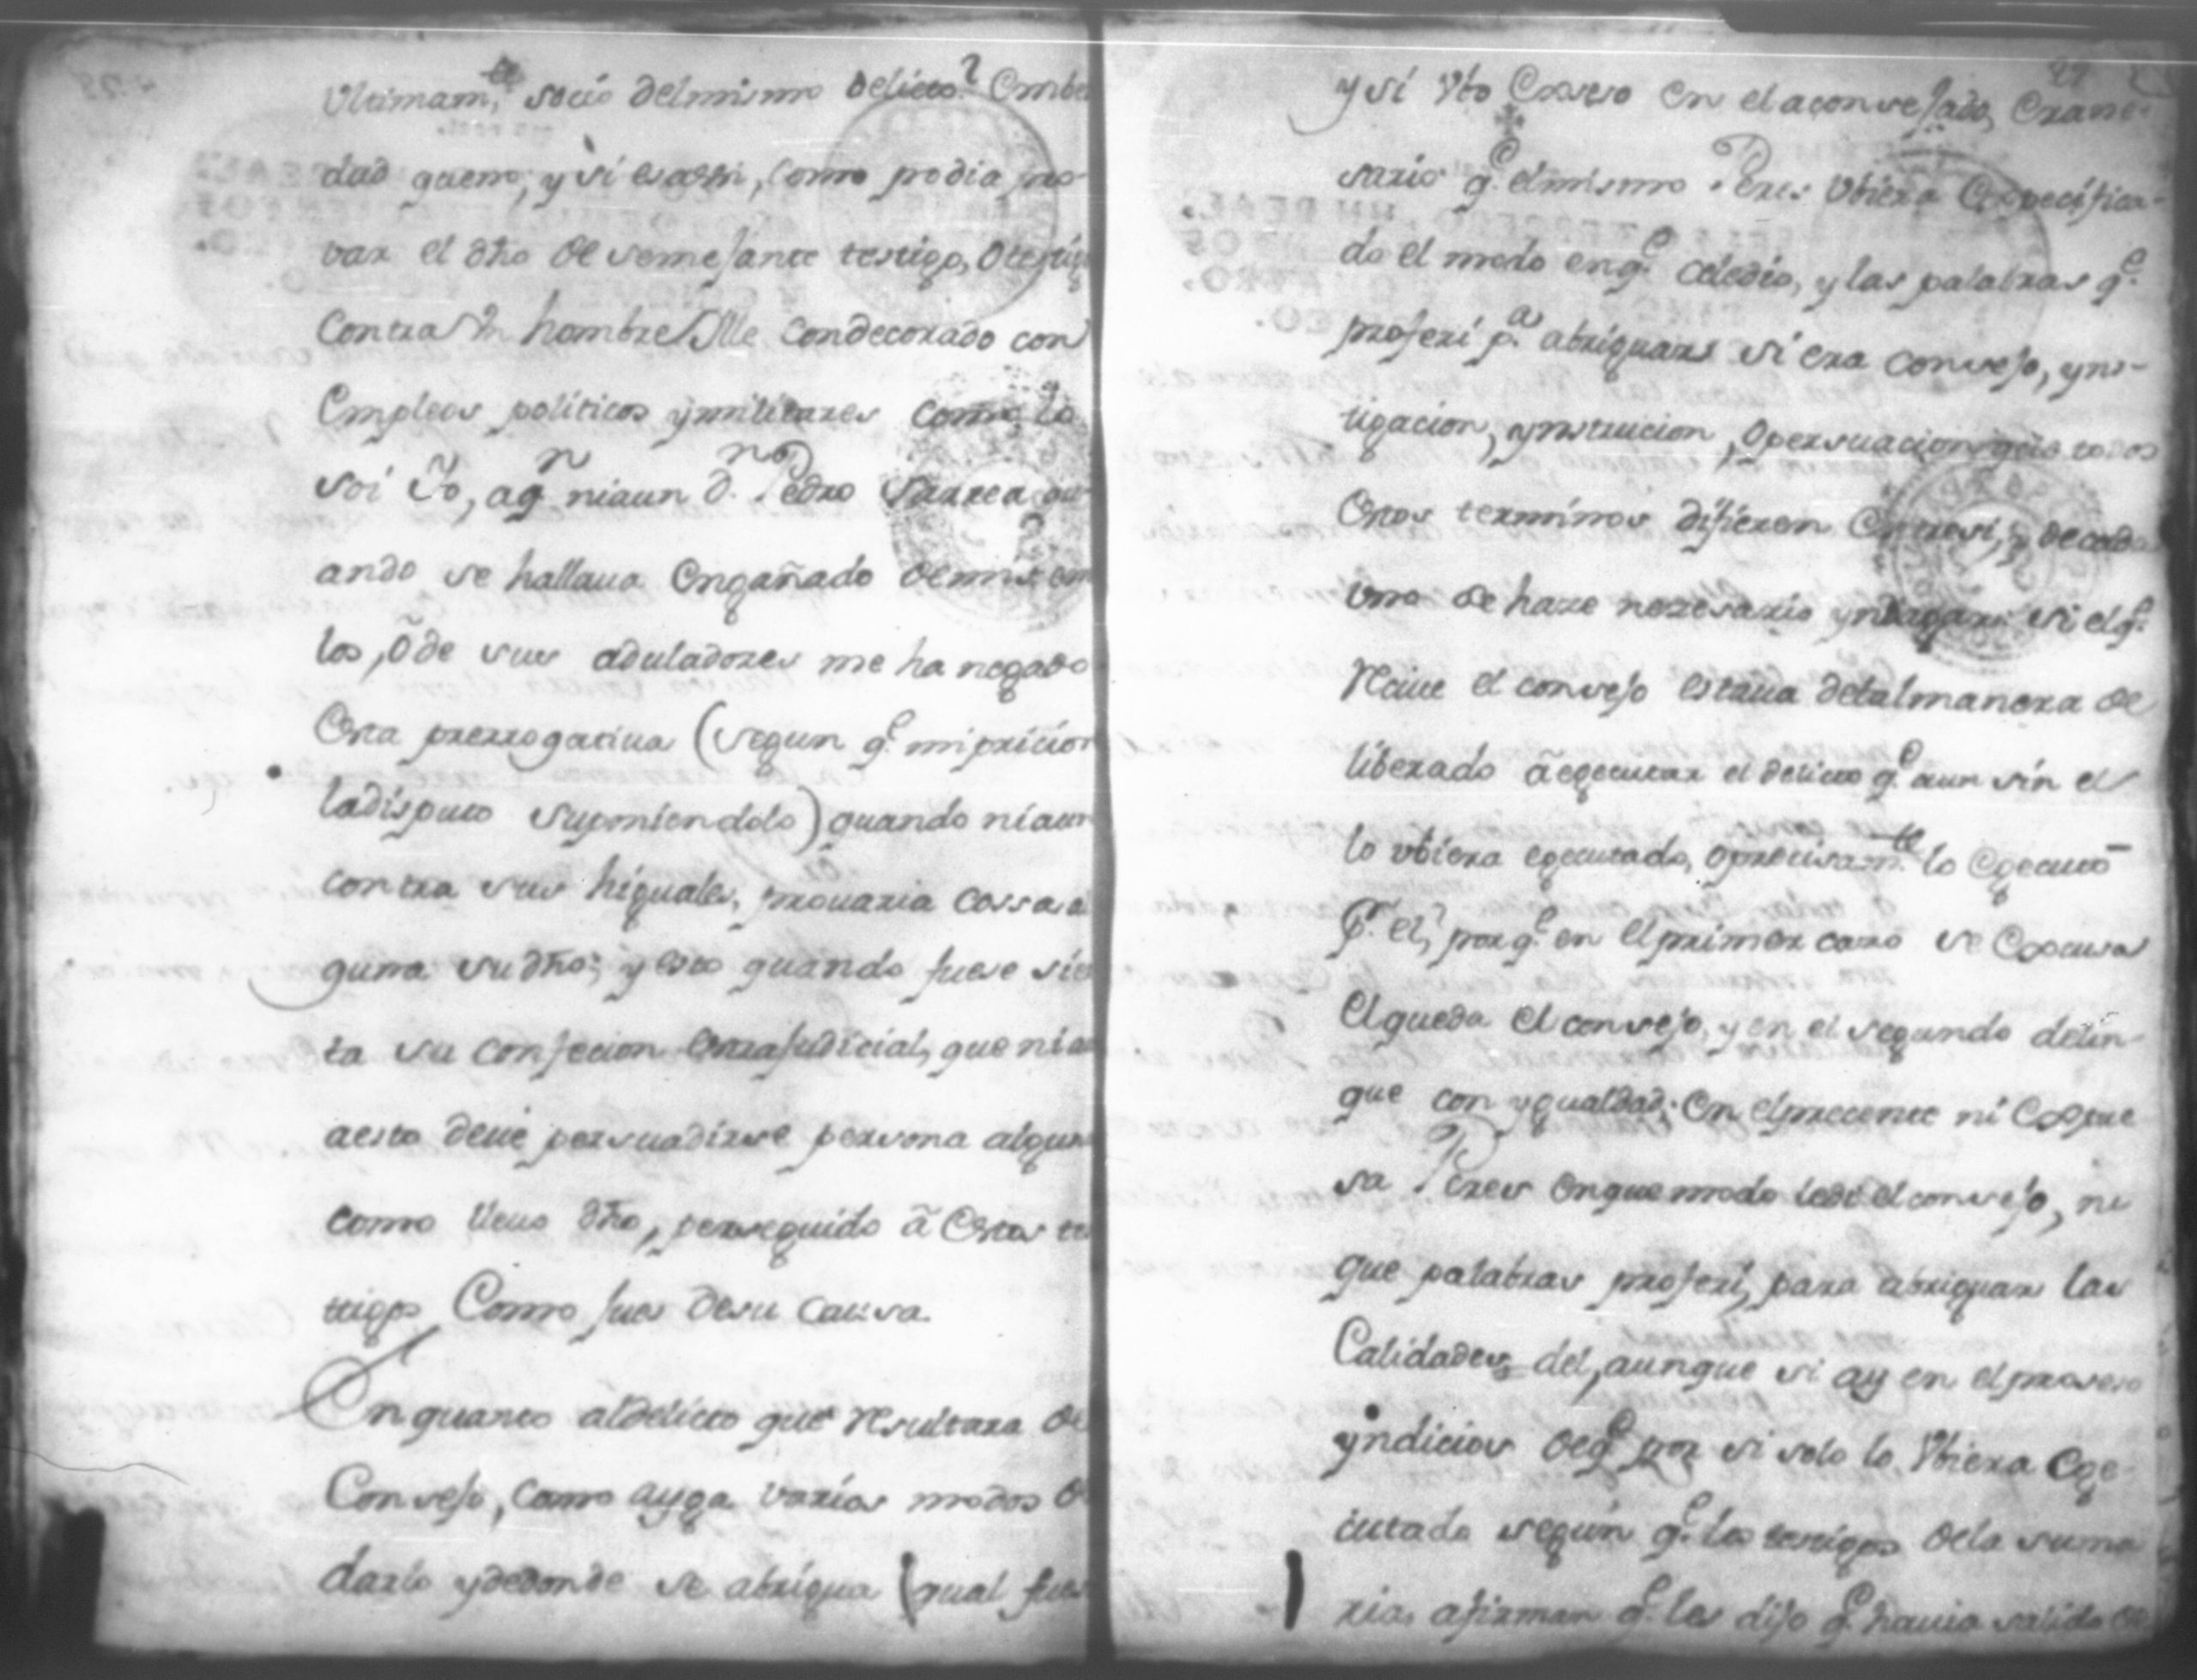 Ultimamte socio del mismo delicto? En rbe
dad que no, y si es assi, como podia pro-
var el dho de semejante testigo, o testig
contra Un hombre Ille condecorado con
Empleos politicos y militares como lo
soi Yo, aqn ni aun Dn Pedro Sarrea qu
ando se hallaua Engañado de mis em
los, õ de sus aduladores me ha negado
Esta prerrogatiua (segun qe mi pricion
la disputo suponiendolo) quando ni aun
contra sus higuales, prouaria cossa al
guna su dho; y esto quando fuese sier
ta su confecion Extrajudicial, que ni a
aesto deue persuadirse persona algun
como lleuo dho, perseguido ã Estos te
tigos Como fues de su causa.
En quanto al delicto que resultara de
Consejo, como ayga varios modos d
darlo y de donde se abrigua (qual fue
y si Vto Expreso en el aconsejado, Era nese
sario qe el mismo Peres Vbiera Expecifica-
do el modo en qe cele dio, y las palabras qe
proferi pa abriguar si era consejo, yns-
tigacion, ynstruicion, o persuacion que todos
Estos terminos difieren Entre si, y de cada
uno se haze nezesario yndagar si el qe
Reciue el consejo estaua de tal manera de
liberado ã egecutar el delicto qe aun sin el
lo vbiera egecutado, o precisamte lo Egecutó
Pr el, por qe en el primer caso se Excusa
El que da el consejo, y en el segundo delin-
que con ygualdad; En el precente ni Expre
sa Peres en que modo le di el consejo, ni
que palabras proferi, para abriguar las
Calidades del, aunque si ay en el proseso
yndicios de qe por si solo lo Vbiera Ege-
cutado segun qe los testigos de la suma
ria, afirman qe les dijo qe hauia salido de